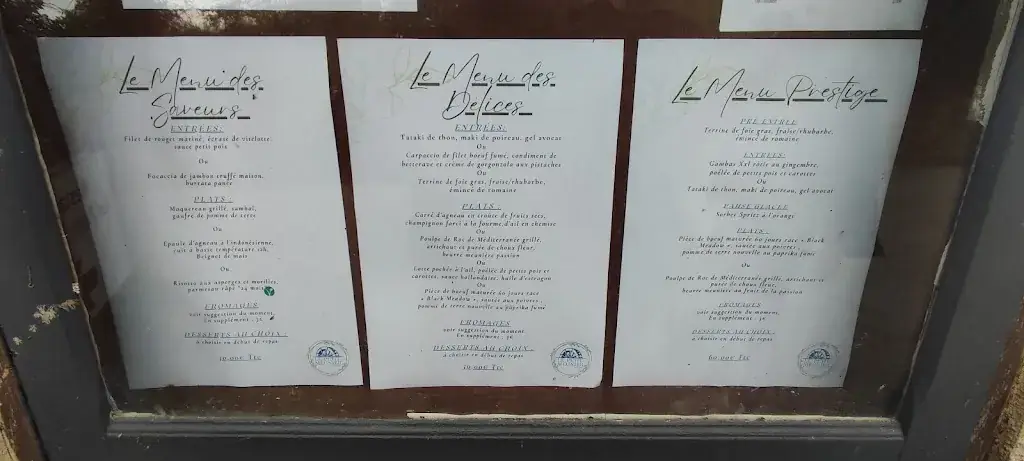 Le Menu des
Saveurs
ENTREES:
Filet de rouget mariné, écrasé de vitelotte,
sauce petit pois
Ou
Focaccia de jambon truffé maison,
burrata panée
PLATS :
Maquereau grillé, sambal,
gaufre de pomme de terre
Ou
Epaule d'agneau à l'indonésienne,
cuit à basse température 12h,
Beignet de maïs
Ou
Risotto aux asperges et morilles,
parmesan râpé "24 mois"
FROMAGES
voir suggestion du moment,
En supplément : 5€
DESSERTS AU CHOIX :
à choisir en début de repas
Ttc
Le Menu des
Délices
ENTREES:
Tataki de thon, maki de poireau, gel avocat
Ou
Carpaccio de filet bœuf fumé, condiment de
betterave et crème de gorgonzola aux pistaches
Ou
Terrine de foie gras, fraise/rhubarbe,
émincé de romaine
PLATS :
Carré d'agneau en croûte de fruits secs,
champignon farci à la fourme d'ail en chemise
Ou
Poulpe de Roc de Méditerranée grillé,
artichaut et purée de choux fleur,
beurre meunière passion
Ou
Lotte pochée à l'ail, poêlée de petits pois et
carottes, sauce hollandaise, huile d'estragon
Ou
Pièce de bœuf maturée 60 jours race
« Black Meadow », saucée aux poivres,
pomme de terre nouvelle au paprika fumé
FROMAGES
voir suggestion du moment
En supplément : 5€
DESSERTS AU CHOIX :
à choisir en début de repas
Ttc
Le Menu Prestige
PRE ENTREE
Terrine de foie gras, fraise/rhubarbe,
émincé de romaine
ENTREES:
Gambas Xxl rôtie au gingembre,
poêlée de petits pois et carottes
Ou
Tataki de thon, maki de poireau, gel avocat
PAUSE GLACEE
Sorbet Spritz à l'orange
PLATS :
Pièce de bœuf maturée 60 jours race « Black
Meadow », saucée aux poivres,
pomme de terre nouvelle au paprika fumé
Ou
Poulpe de Roc de Méditerranée grillé, artichaut et
purée de choux fleur,
beurre meunière au fruit de la passion
FROMAGES
voir suggestion du moment
En supplément : 5€
DESSERTS AU CHOIX :
à choisir en début de repas
60.00€ Ttc